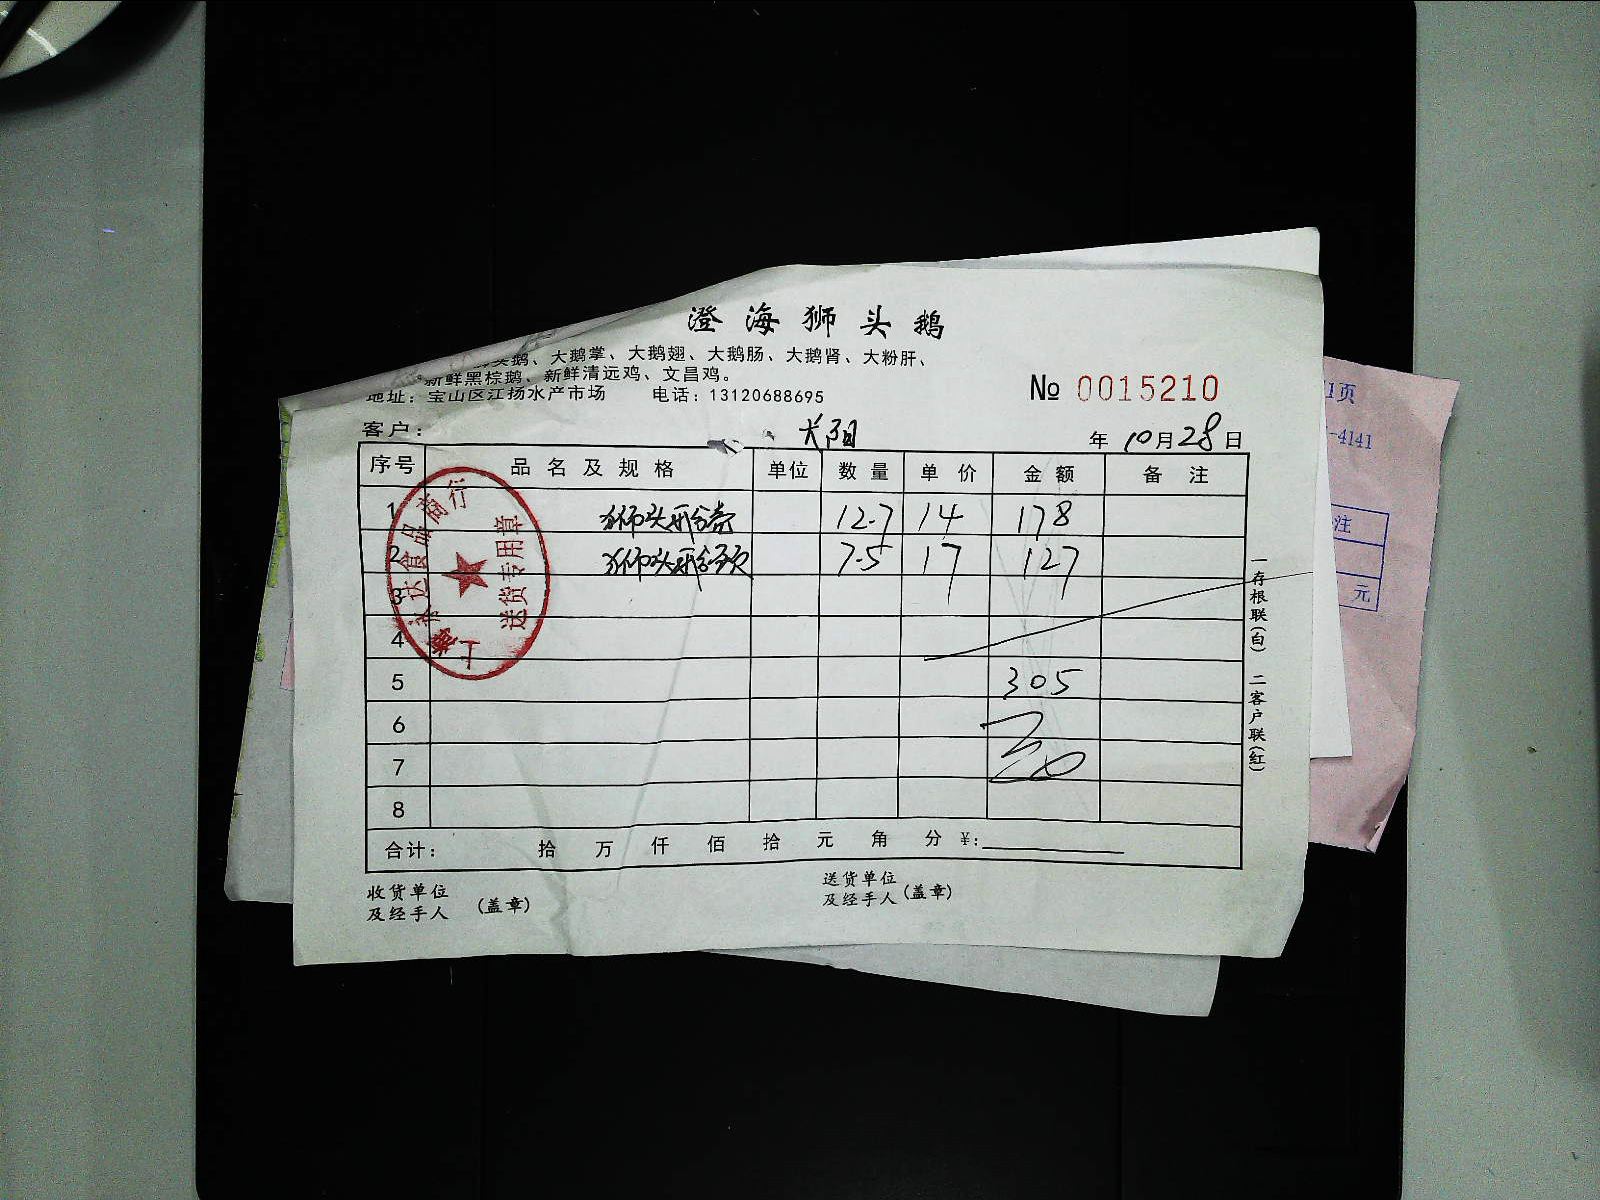 澄海狮头鹅
头鹅、大鹅掌、大鹅翅、大鹅肠、大鹅肾、大粉肝、
新鲜黑棕鹅、新鲜清远鸡、文昌鸡。
地址：宝山区江扬水产市场 电话：13120688695
№ 0015210
客户：
年 10月28日
序号 品名及规格 单位 数量 单价 金额 备注
1 狮头 12.7 14 178
2 狮头 7.5 17 127
3
4
5 305
6
7
8
合计： 拾 万 仟 佰 拾 元 角 分 ¥:
收货单位
及经手人 (盖章)
送货单位
及经手人 (盖章)
一存根联(白) 二客户联(红)
食品商行
送货专用章
1页
-4141
注
元